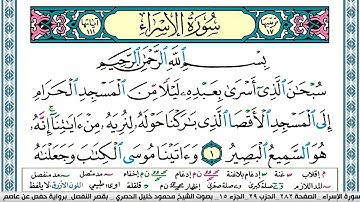 ترتيبها ١٧ سُورَةُ الإِسْرَاءِ آياتها ١١١
بِسْمِ اللَّهِ الرَّحْمَٰنِ الرَّحِيمِ
سُبْحَٰنَ الَّذِي أَسْرَىٰ بِعَبْدِهِ لَيْلًا مِّنَ الْمَسْجِدِ الْحَرَامِ
إِلَى الْمَسْجِدِ الْأَقْصَا الَّذِي بَٰرَكْنَا حَوْلَهُ لِنُرِيَهُ مِنْ ءَايَٰتِنَا إِنَّهُ
هُوَ السَّمِيعُ الْبَصِيرُ ١ وَءَاتَيْنَا مُوسَى الْكِتَٰبَ وَجَعَلْنَٰهُ
سورة الإسراء، الصفحة ٢٨٢ الجزء ١٥ بصوت الشيخ محمود خليل الحصري - بقصر المنفصل، برواية حفص عن عاصم